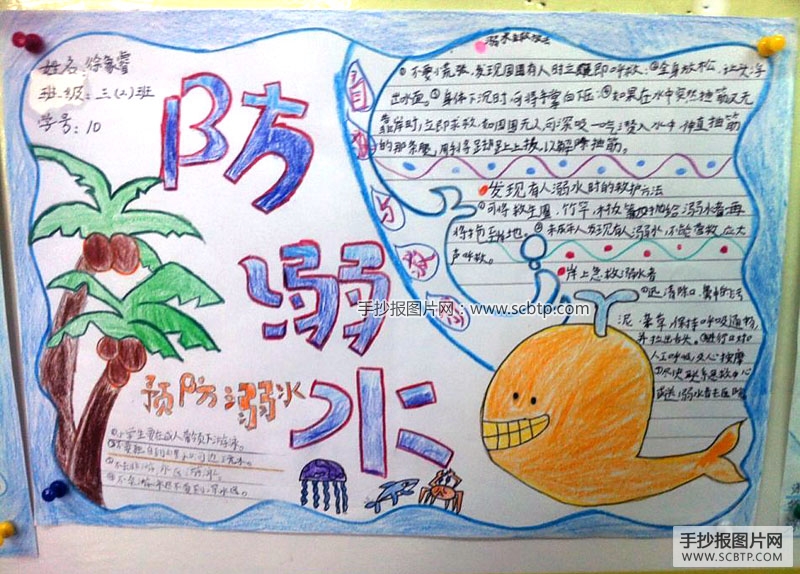 姓名:徐象睿
班级:三(2)班
学号:10
防溺水
预防溺水
溺水自救办法
①不要慌张,发现周围有人时立即呼救;②全身放松,让头浮
出水面。③身体下沉时,可将手掌向下压;④如果在水中突然抽筋又无
靠岸时,立即求救,如周围无人,可深吸一气潜入水中,伸直抽筋
的那条腿,用手将足趾向上拔,以解除抽筋。
自救与
发现有人溺水时的救护方法
①可将救生圈,竹竿、木板等抛给溺水者再
将拖至岸地。②未成年人发现有人溺水,不能
声呼救。
岸上急救溺水者
①迅清除口、鼻中的污
泥、杂草,保持呼吸道畅
并拉出舌头。②进行口对
人工呼吸及心按摩
③尽快联系急救中心
或送溺水者去医院
①小学生要在成人带领下游泳。
手抄报图片网:www.scbtp.com
手抄报图片网
WWW.SCBTP.COM